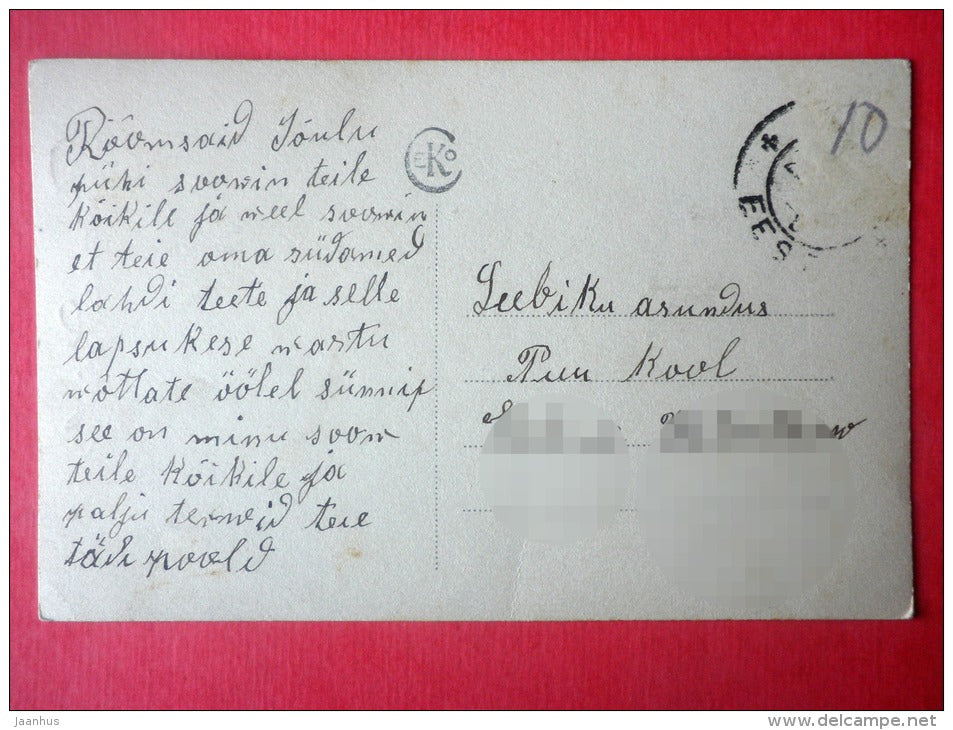 Rõõmsaid Jõulu
pühi soowin teile
kõikile ja weel soowin
et teie oma südamed
lahdi teete ja selle
lapsukese wastu
wõttate öölel sünnip
see on minu soow
teile kõikile ja
palju terweid teie
tädi poold
EKO
10
* EES
Seebiku asundus
Puu Kool
Jaanhus
delcampe.net